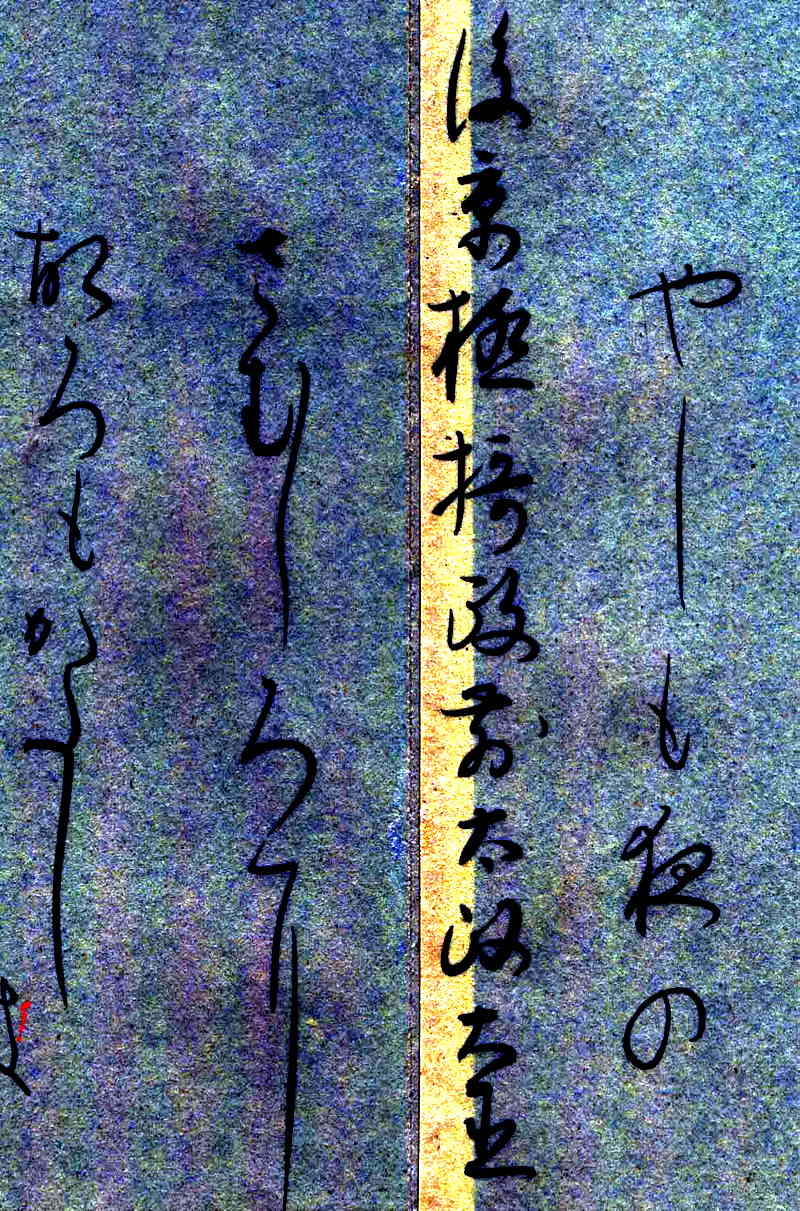 やしも夜の
後京極摂政前太政大臣
さむしろに
ころもかたし